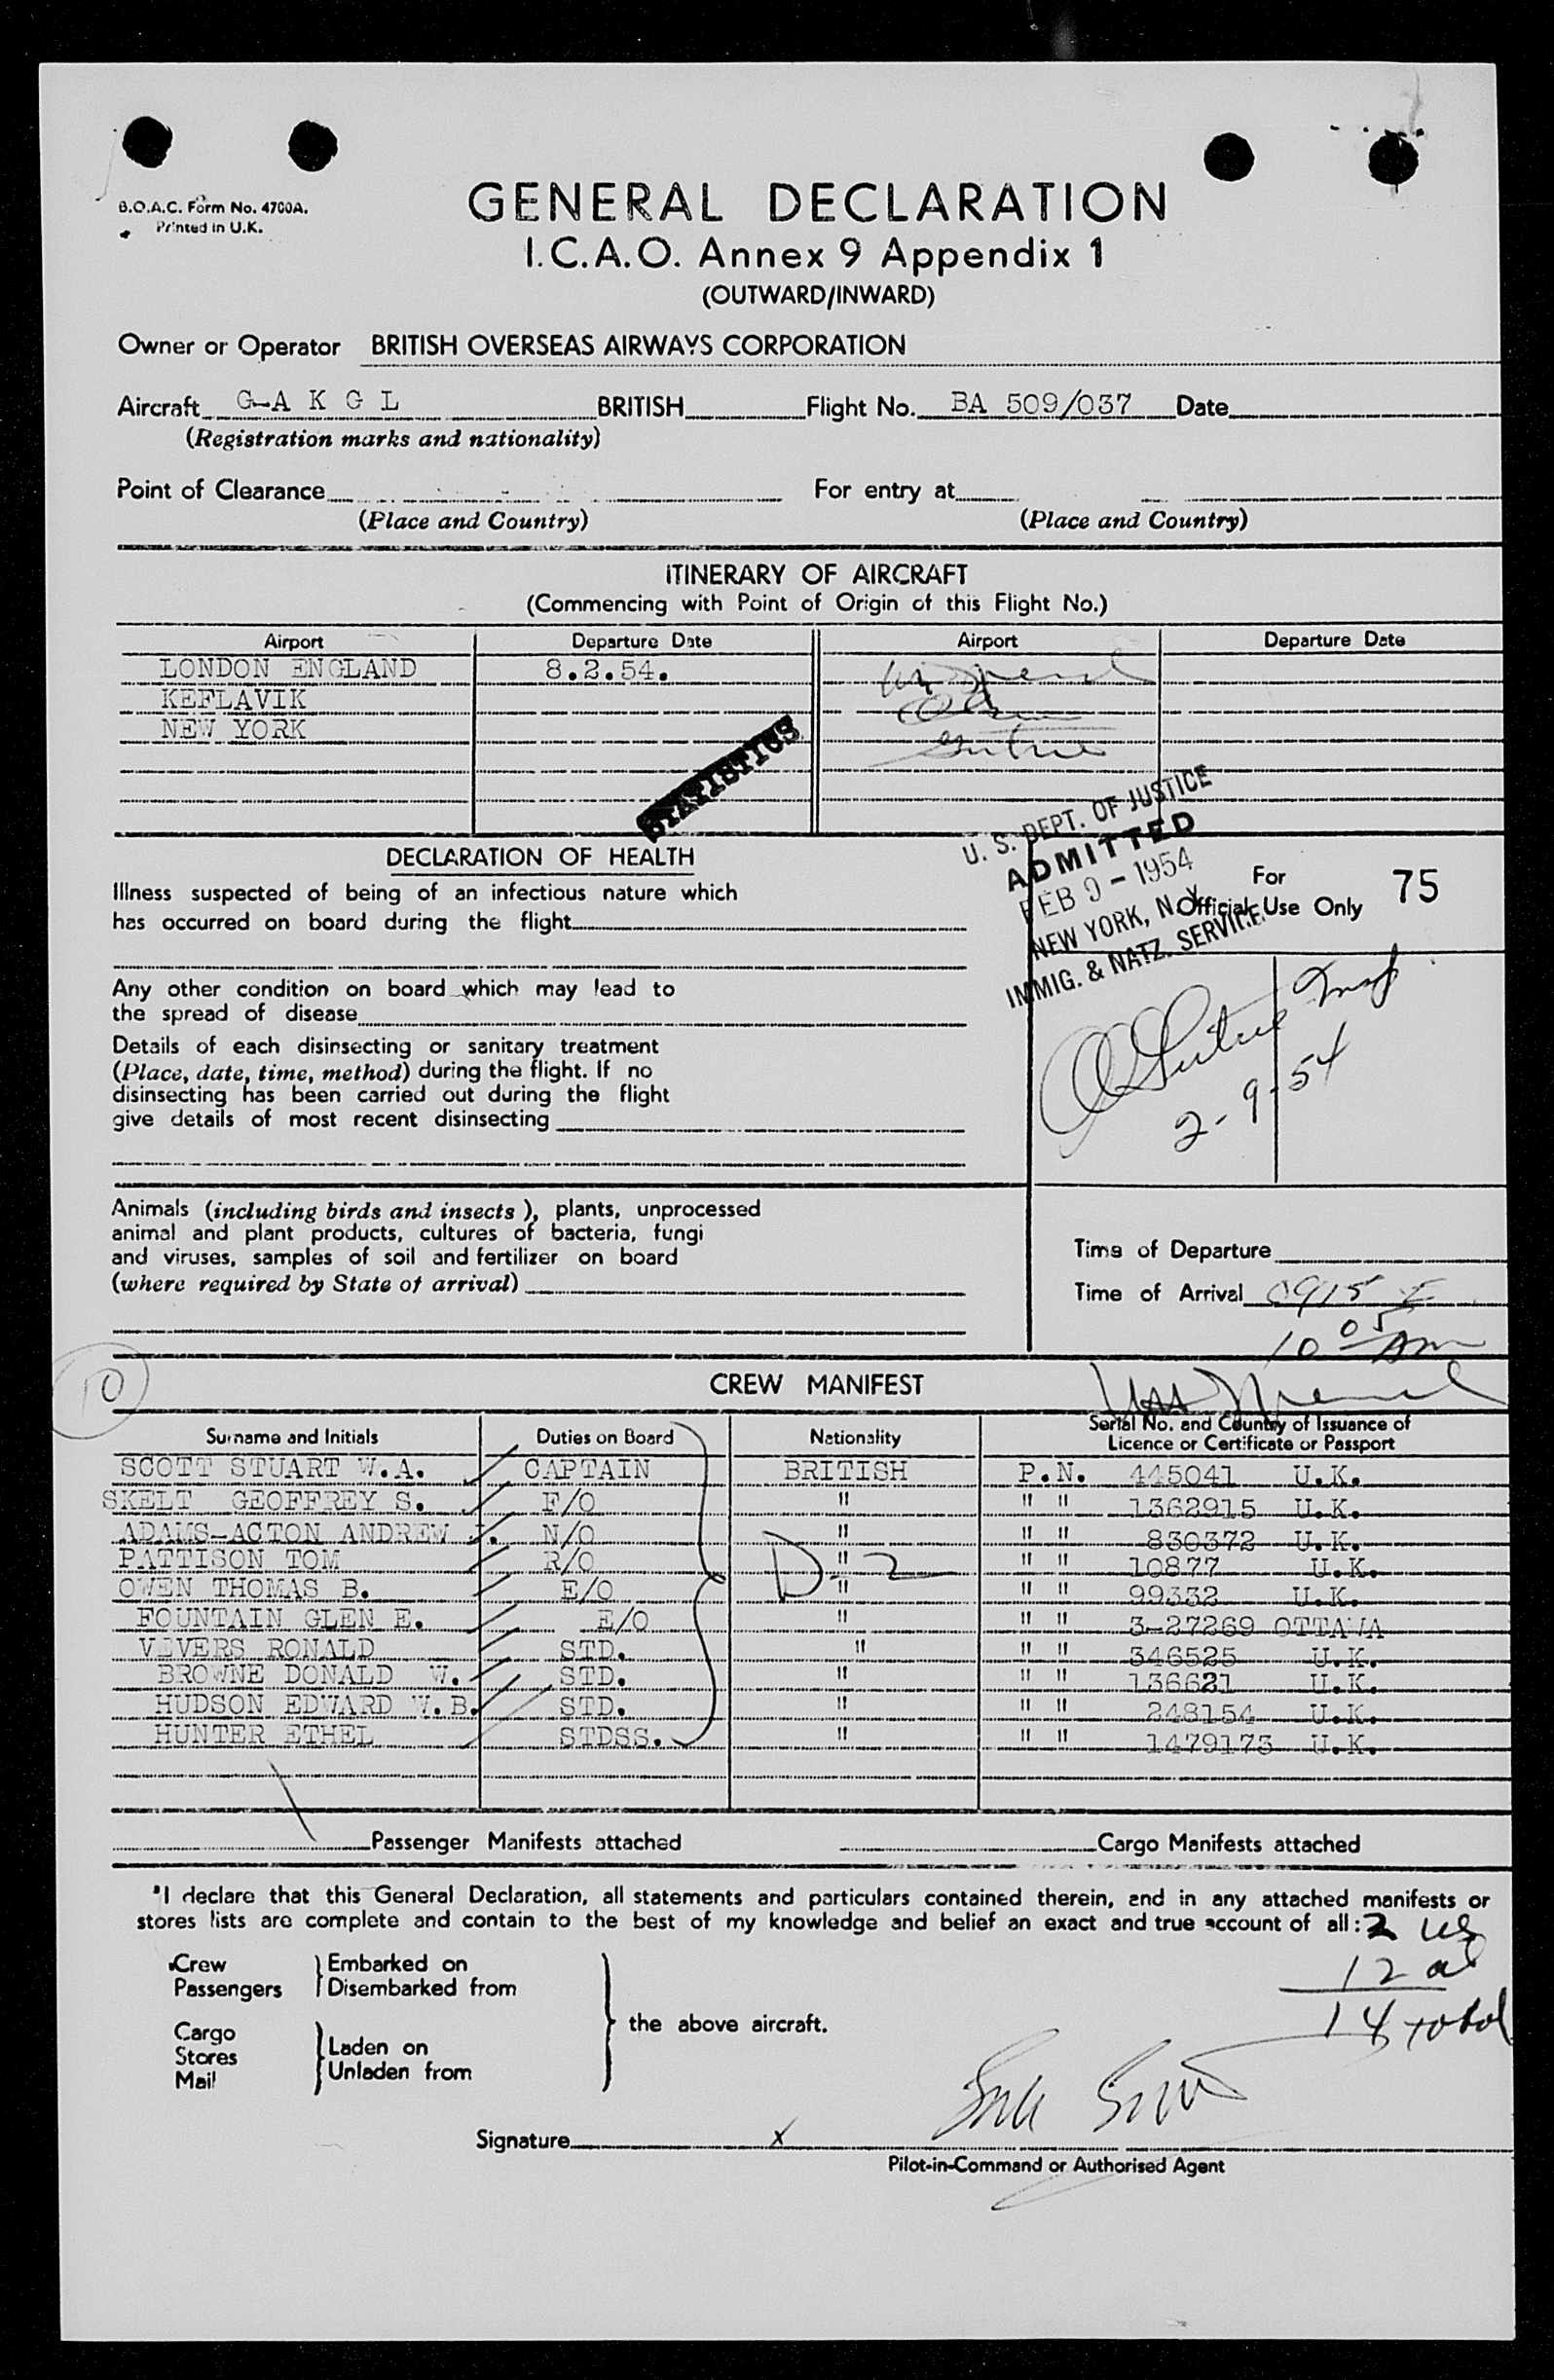 B.O.A.C. Form No. 4700A.
Printed in U.K.
GENERAL DECLARATION
I.C.A.O. Annex 9 Appendix 1
(OUTWARD/INWARD)
Owner or Operator BRITISH OVERSEAS AIRWAYS CORPORATION
Aircraft G-A K G L BRITISH Flight No. BA 509/037 Date
(Registration marks and nationality)
Point of Clearance For entry at
(Place and Country) (Place and Country)
ITINERARY OF AIRCRAFT
(Commencing with Point of Origin of this Flight No.)
Airport Departure Date Airport Departure Date
LONDON ENGLAND 8.2.54.
KEFLAVIK
NEW YORK
STATISTICS
U. S. DEPT. OF JUSTICE
ADMITTED
FEB 9 - 1954
NEW YORK, N.Y.
IMMIG. & NATZ. SERVICE
For
Official Use Only 75
2-9-54
DECLARATION OF HEALTH
Illness suspected of being of an infectious nature which
has occurred on board during the flight
Any other condition on board which may lead to
the spread of disease
Details of each disinsecting or sanitary treatment
(Place, date, time, method) during the flight. If no
disinsecting has been carried out during the flight
give details of most recent disinsecting
Animals (including birds and insects), plants, unprocessed
animal and plant products, cultures of bacteria, fungi
and viruses, samples of soil and fertilizer on board
(where required by State of arrival)
Time of Departure
Time of Arrival 0915
10 05 AM
10
CREW MANIFEST
Surname and Initials Duties on Board Nationality Serial No. and Country of Issuance of
Licence or Certificate or Passport
SCOTT STUART W.A. CAPTAIN BRITISH P.N. 445041 U.K.
SKELT GEOFFREY S. F/O " " " 1362915 U.K.
ADAMS-ACTON ANDREW N/O " " " 830372 U.K.
PATTISON TOM R/O " " " 10877 U.K.
D-2
OWEN THOMAS B. E/O " " " 99332 U.K.
FOUNTAIN GLEN E. E/O " " " 3-27269 OTTAWA
VIVERS RONALD STD. " " " 346525 U.K.
BROWNE DONALD W. STD. " " " 136621 U.K.
HUDSON EDWARD W.B. STD. " " " 248154 U.K.
HUNTER ETHEL STDSS. " " " 1479173 U.K.
Passenger Manifests attached Cargo Manifests attached
"I declare that this General Declaration, all statements and particulars contained therein, and in any attached manifests or
stores lists are complete and contain to the best of my knowledge and belief an exact and true account of all:
2 US
12 al
14 total
Crew Embarked on
Passengers Disembarked from
the above aircraft.
Cargo
Stores Laden on
Mail Unladen from
Signature x
Pilot-in-Command or Authorised Agent